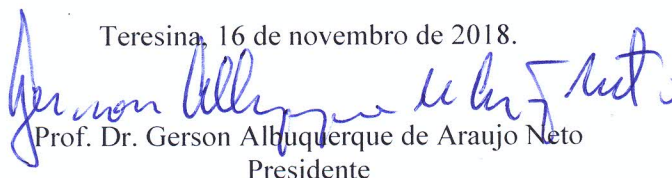 Teresina, 16 de novembro de 2018.
Gerson Albuquerque de Araujo Neto
Prof. Dr. Gerson Albuquerque de Araujo Neto
Presidente